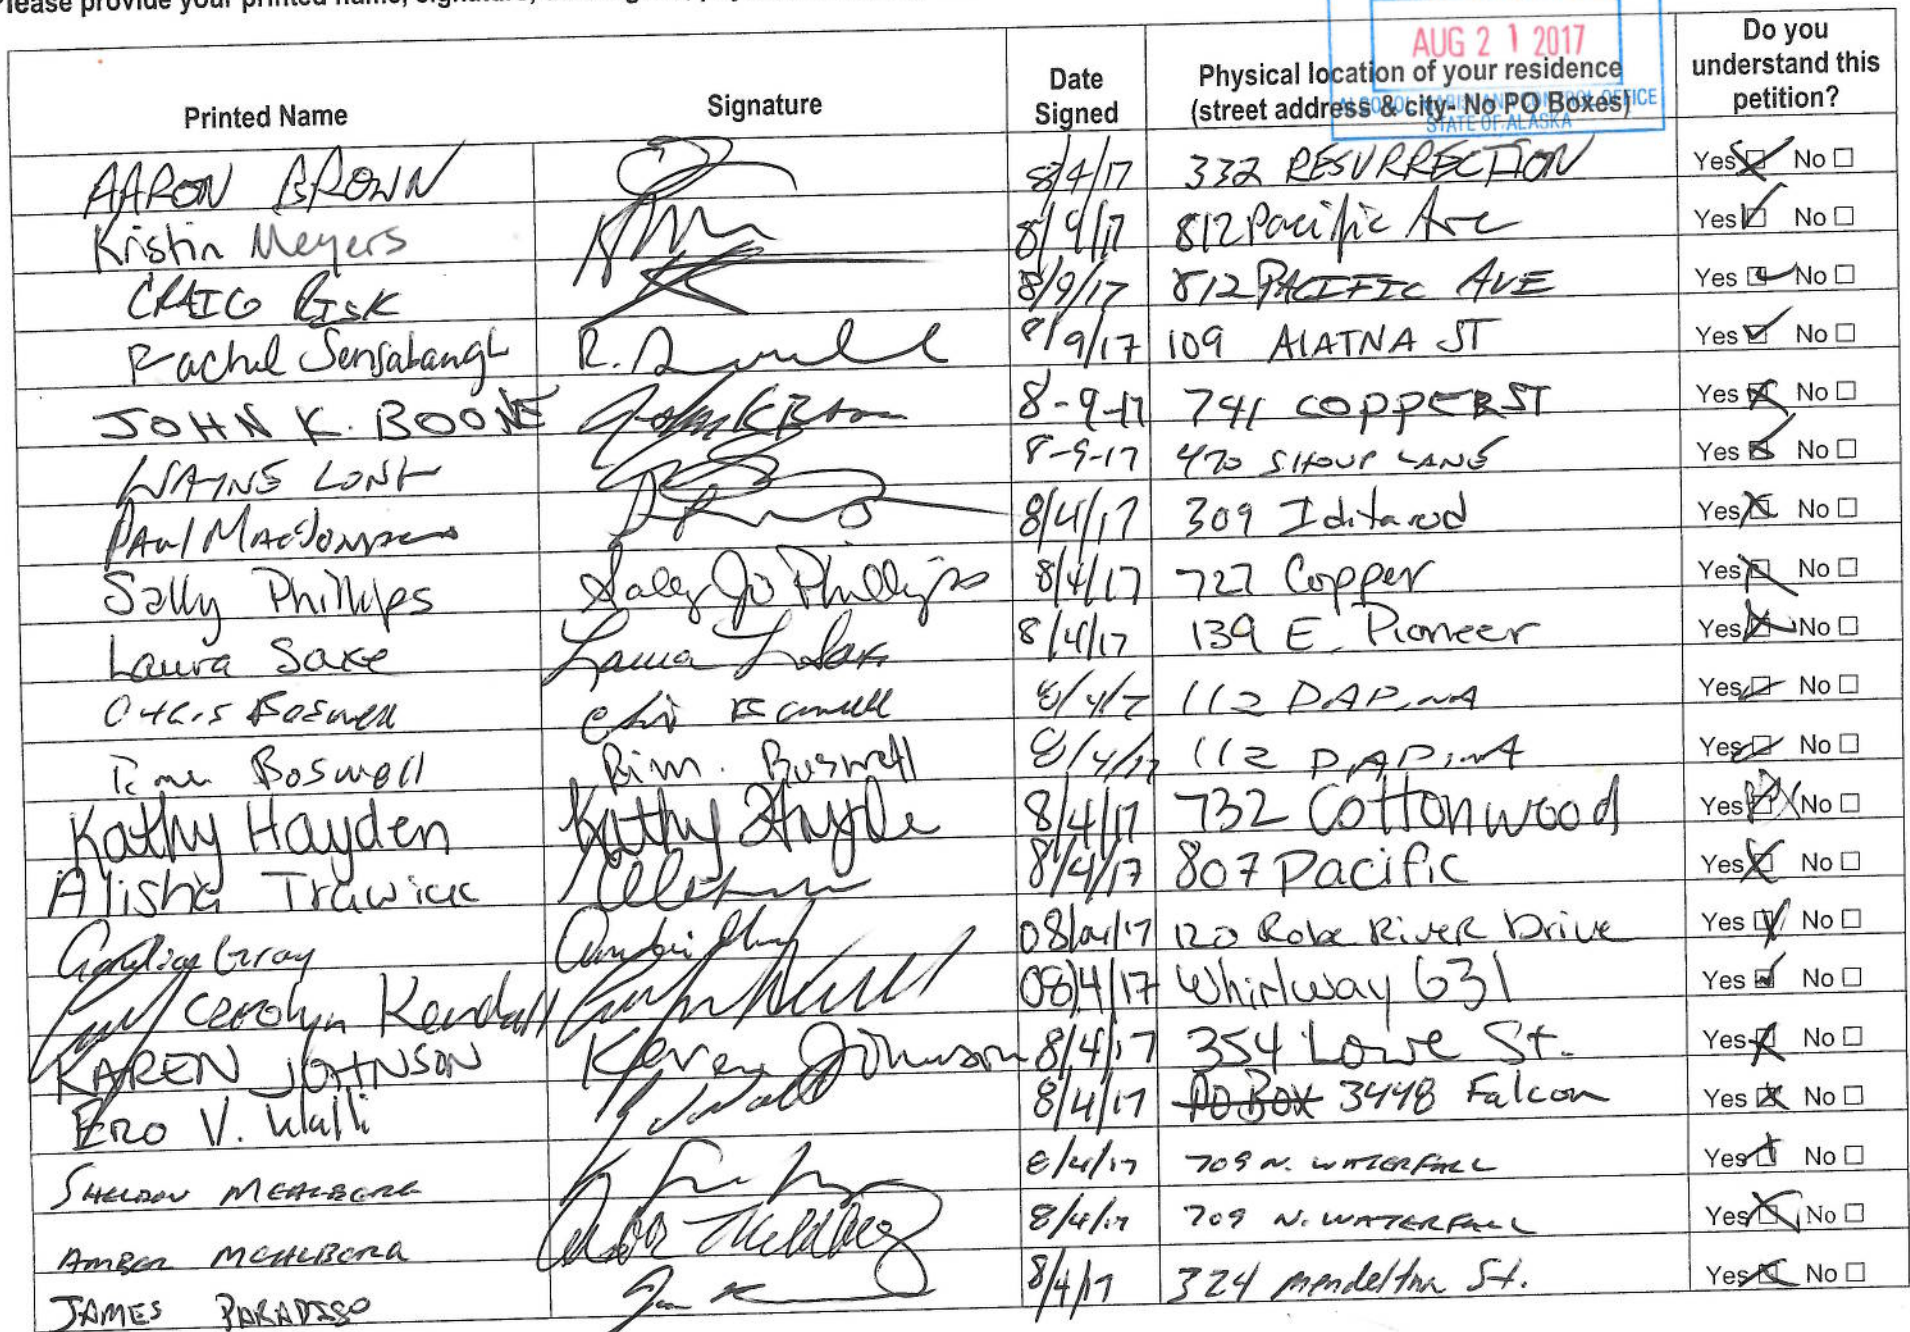 Please provide your printed name, signature,
AUG 2 1 2017
ALCOHOL MARIJUANA CONTROL OFFICE
STATE OF ALASKA
Printed Name Signature Date Signed Physical location of your residence (street address & city- No PO Boxes) Do you understand this petition?
AARON BROWN 8/4/17 332 RESURRECTION Yes No
Kristin Meyers 8/9/17 812 Pacific Ave Yes No
CRAIG RISK 8/9/17 812 PACIFIC AVE Yes No
Rachel Sensabaugh R. 8/9/17 109 AlATNA ST Yes No
JOHN K. BOONE John K Boone 8-9-17 741 COPPER ST Yes No
WAYNE 8-9-17 470 SHOUP LANE Yes No
PAul 8/4/17 309 Iditarod Yes No
Sally Phillips Sally Jo Phillips 8/4/17 727 Copper Yes No
Laura Saxe Laura L Saxe 8/4/17 139 E. Pioneer Yes No
Boswell 8/4/17 112 DAPiNA Yes No
Boswell Boswell 8/4/17 112 DAPiNA Yes No
Kathy Hayden Kathy Hayden 8/4/17 732 Cottonwood Yes No
Alisha Trawick 8/4/17 807 Pacific Yes No
Gray 08/04/17 120 Robe River Drive Yes No
Carolyn Kendall 08/4/17 Whirlway 631 Yes No
KAREN JOHNSON Karen Johnson 8/4/17 354 Lowe St. Yes No
ERO V. Walli 8/4/17 PO BOX 3448 Falcon Yes No
SHELDON MEHLBERG 8/4/17 709 N. WATERFALL Yes No
AMBER MEHLBERG Amber Mehlberg 8/4/17 709 N. WATERFALL Yes No
JAMES PARADISO 8/4/17 324 Mendeltna St. Yes No